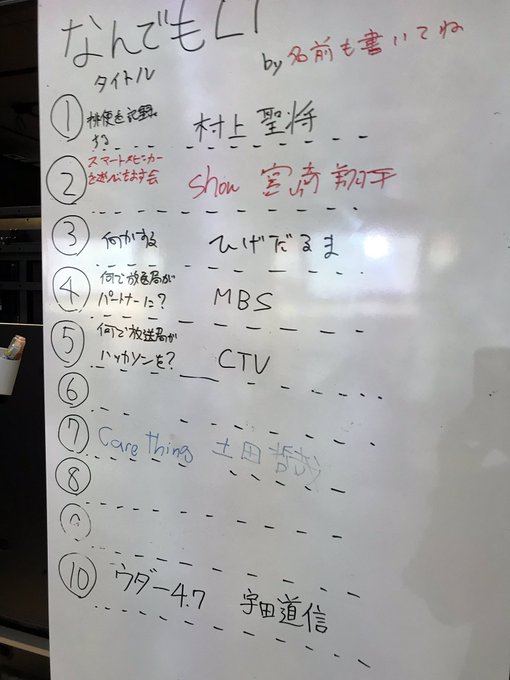 なんでもLT
by 名前も書いてね
タイトル
① 排便を記録
する
村上 聖将
② スマートスピーカー
を 会
Shou 宮崎 翔子
③ 何かする ひげだるま
④ 何で放送局が
パートナーに?
MBS
⑤ 何で放送局が
ハッカソンを?
CTV
⑥
⑦ Care Thing 土田
⑧
⑨
⑩ ウダー4.7 宇田道信